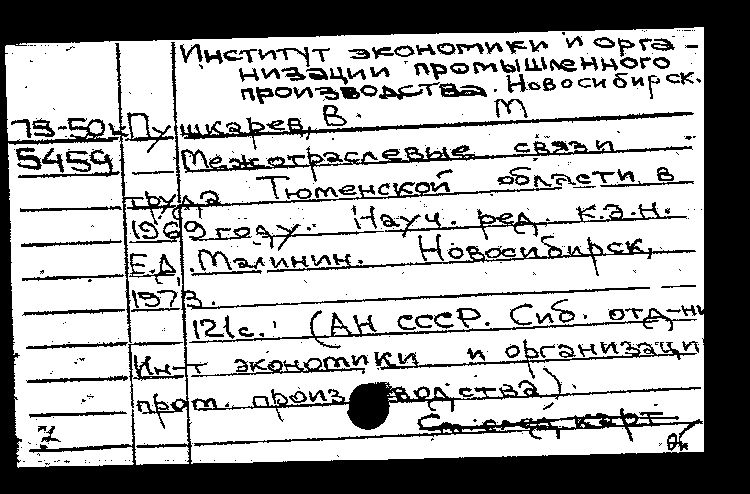 Институт экономики и орга-
низации промышленного
производства. Новосибирск.
М
73-50к Пушкарев, В.
5459 Межотраслевые связи
труда Тюменской области в
1969 году. Науч. ред. к.э.н.
Е.Д. Малинин. Новосибирск,
1973.
121с. (АН СССР. Сиб. отд-ни
Ин-т экономики и организаци
пром. производства).
См. след. карт
7